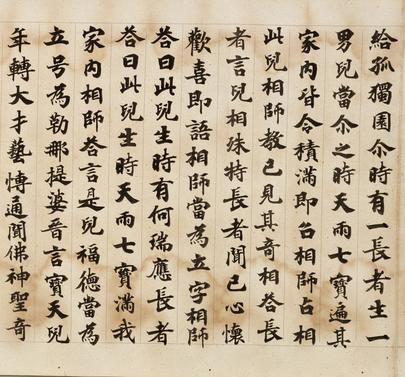 給孤獨園尒時有一長者生一
男兒當尒之時天雨七寶遍其
家內皆令積滿即召相師占相
此兒相師教已見其奇相荅長
者言兒相殊特長者聞已心懷
歡喜即語相師當為立字相師
荅曰此兒生時有何瑞應長者
荅曰此兒生時天雨七寶滿我
家內相師荅言是兒福德當為
立号為勒那提婆晉言寶天兒
年轉大才藝博通聞佛神聖奇